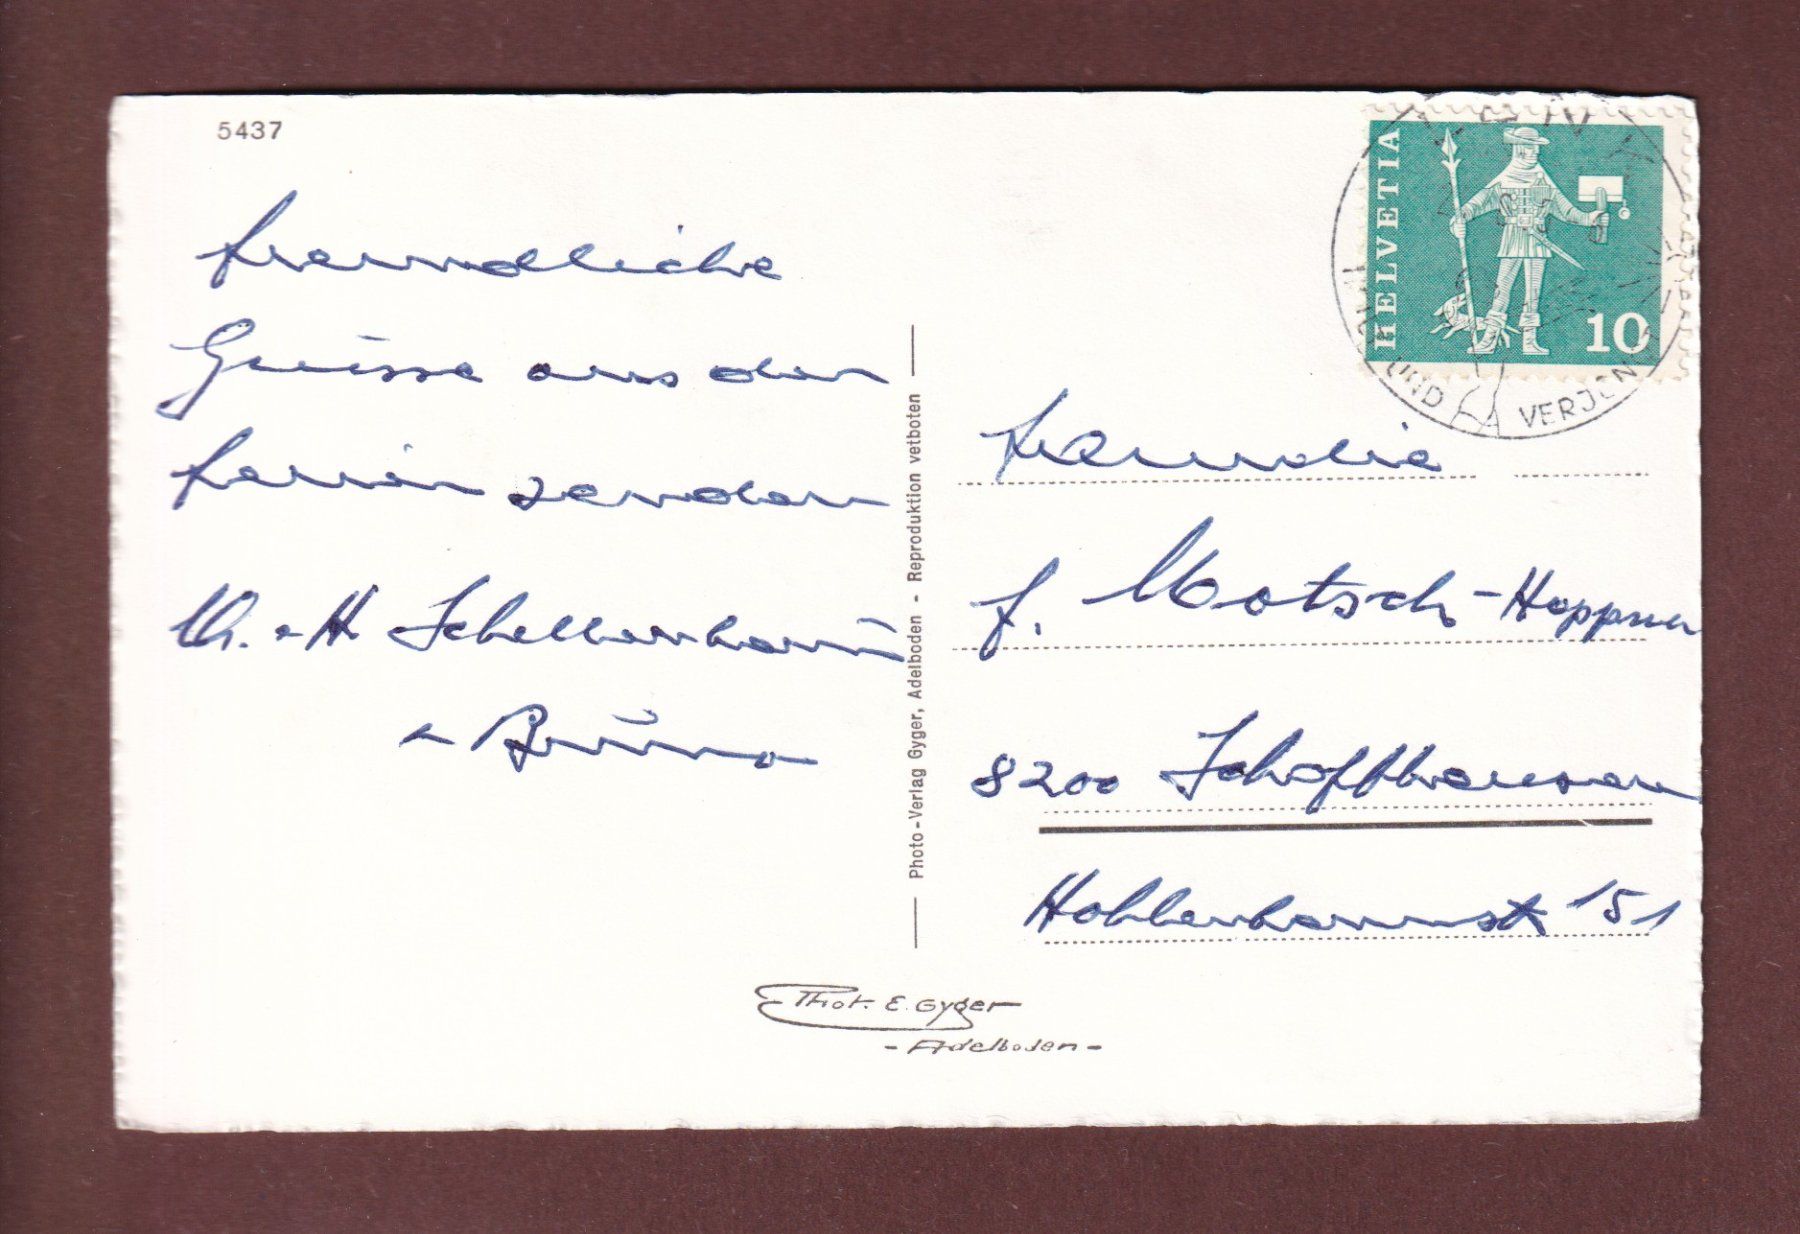 5437
freundliche
Grüsse aus den
Ferien senden
u. H
u. Bruno
Photo-Verlag Gyger, Adelboden - Reproduktion vetboten
HELVETIA
10
UND VERJÜN
Familie
J. Motsch-Hoppner
8200 Schaffhausen
Hohlenbaumst 151
Phot. E. Gyger
- Adelboden -